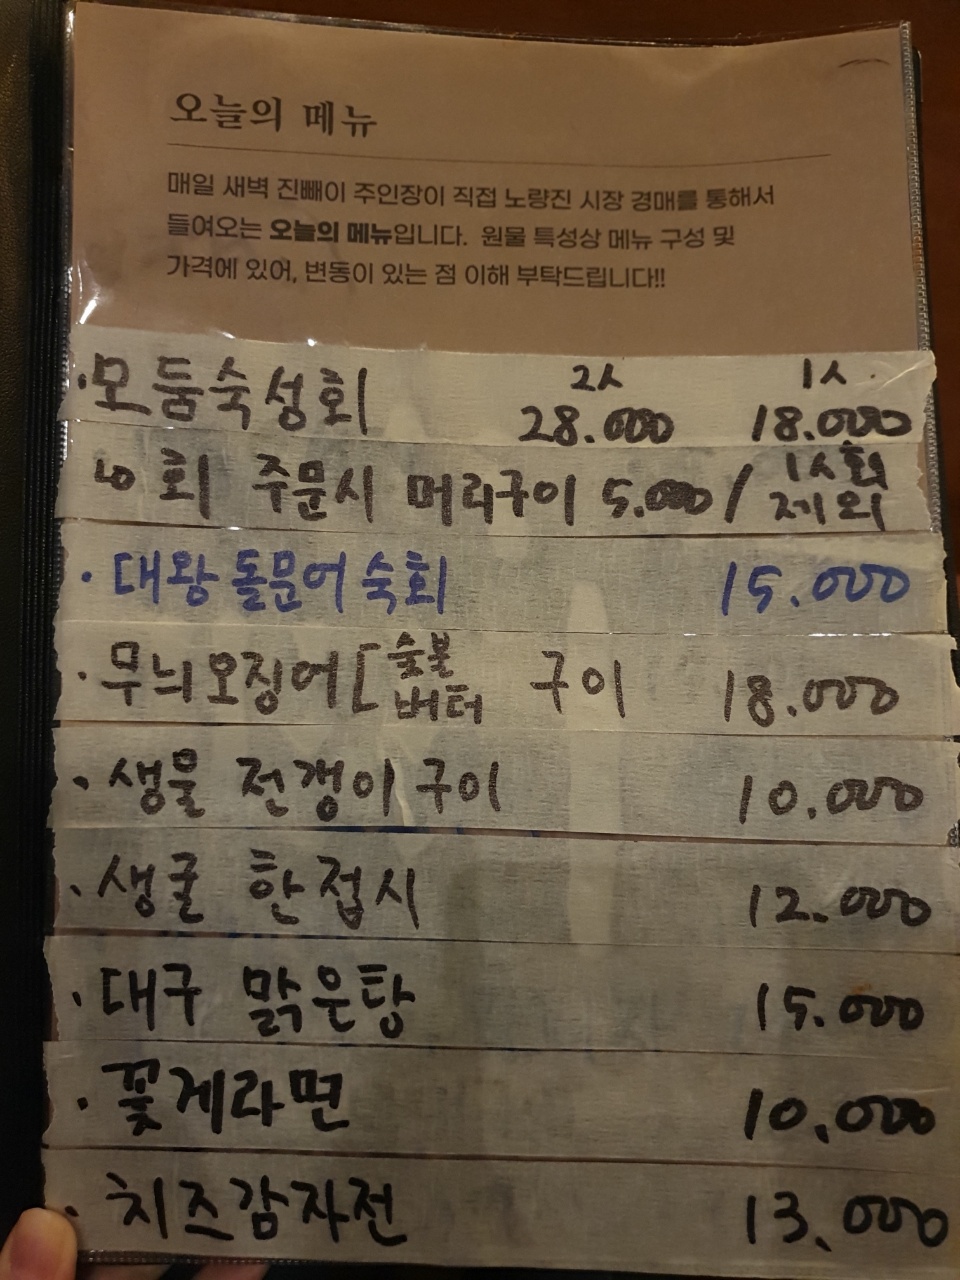 오늘의 메뉴
매일 새벽 진빼이 주인장이 직접 노량진 시장 경매를 통해서
들여오는 오늘의 메뉴입니다. 원물 특성상 메뉴 구성 및
가격에 있어, 변동이 있는 점 이해 부탁드립니다!!
·모둠숙성회 2人 28.000 1人 18.000
↳ 회 주문시 머리구이 5.000 / 1人회 제외
· 대왕돌문어숙회 15.000
· 무늬오징어 [숯불 버터 구이 18.000
· 생물 전갱이구이 10.000
· 생굴 한접시 12.000
· 대구 맑은탕 15.000
· 꽃게라면 10.000
· 치즈감자전 13.000